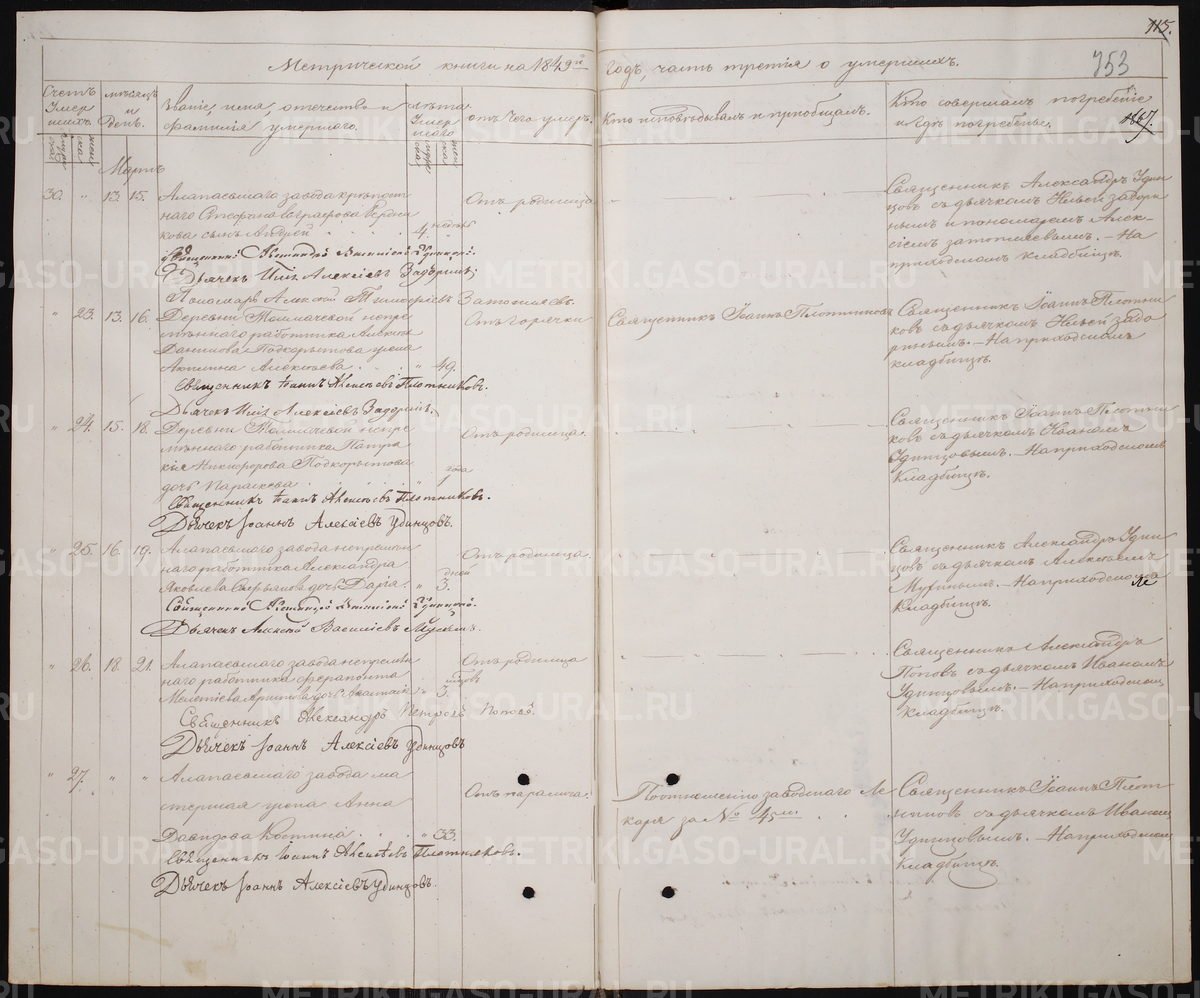 115.
353
Метрической книги на 1849й годъ, часть третія о умершихъ.
Счетъ умершихъ.
мужеска
женска
мѣсяцъ и день.
Званіе, имя, отечество и фамилія умершаго.
лѣта умершаго
мужеска
женска
отъ чего умеръ.
Кто исповѣдывалъ и пріобщалъ.
Кто совершалъ погребеніе и гдѣ погребены.
Мартъ
30. " 13. 15. Алапаевскаго завода крѣпост-
наго Стефана
сынъ Андрей 4. недѣль
Отъ родимца
Священникъ Александръ Удин-
цовъ съ дьячкомъ Ильей Задори-
нымъ и пономаремъ Алек-
сіемъ Затопляевымъ. - На
приходскомъ кладбищѣ.
Священникъ Удинцовъ.
Дьячекъ Илія Алексіевъ Задоринъ;
Пономарь Алексѣй Тимофіевъ Затопляевъ.
" 23. 13. 16. Деревни Толмачевой непре-
мѣннаго работника Алексѣя
Данилова Подкорытова жена
Акилина Алексѣева " 49.
Отъ горячки
Священникъ Іоаннъ Плотниковъ
Священникъ Іоаннъ Плотни-
ковъ съ дьячкомъ Ильей Задо-
ринымъ. - На приходскомъ
кладбищѣ.
Священникъ Іоаннъ Алексѣевъ Плотниковъ.
Дьячекъ Илія Алексіевъ Задоринъ.
" 24. 15. 18. Деревни Толмачевой непре-
мѣннаго работника Патри-
кія Никифорова Подкорытова
дочь Параскева " 1 года
Отъ родимца.
Священникъ Іоаннъ Плотни-
ковъ съ дьячкомъ Иваномъ
Удинцовымъ. - На приходскомъ
кладбищѣ.
Священникъ Іоаннъ Алексѣевъ Плотниковъ.
Дьячекъ Іоаннъ Алексіевъ Удинцовъ.
" 25. 16. 19. Алапаевскаго завода непремѣн-
наго работника Александра
Яковлева дочь Дарья. " 3. дней
Отъ родимца.
Священникъ Александръ Удин-
цовъ съ дьячкомъ Алексѣемъ
Мухинымъ. - На приходскомъ
кладбищѣ.
Священникъ Удинцовъ.
Дьячекъ Алексѣй Василіевъ Мухинъ.
" 26. 18. 21. Алапаевскаго завода непремѣн-
наго работника Ферапонта
дочь " 3.
Отъ родимца
Священникъ Александръ
Поповъ съ дьячкомъ Иваномъ
Удинцовымъ. - На приходскомъ
кладбищѣ.
Священникъ Александръ Петровъ Поповъ.
Дьячекъ Іоаннъ Алексіевъ Удинцовъ
" 27. " " Алапаевскаго завода ма-
стерская жена Анна
Давыдова Костина " 33.
Отъ паралича.
По отношенію заводскаго Ле-
каря за № 45м.
Священникъ Іоаннъ Плот-
никовъ съ дьячкомъ Иваномъ
Удинцовымъ. - На приходскомъ
кладбищѣ.
Священникъ Іоаннъ Алексѣевъ Плотниковъ.
Дьячекъ Іоаннъ Алексіевъ Удинцовъ.
METRIKI.GASO-URAL.RU